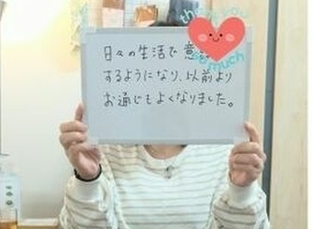 thank you
so much
日々の生活で意
するようになり、以前より
お通じもよくなりました。